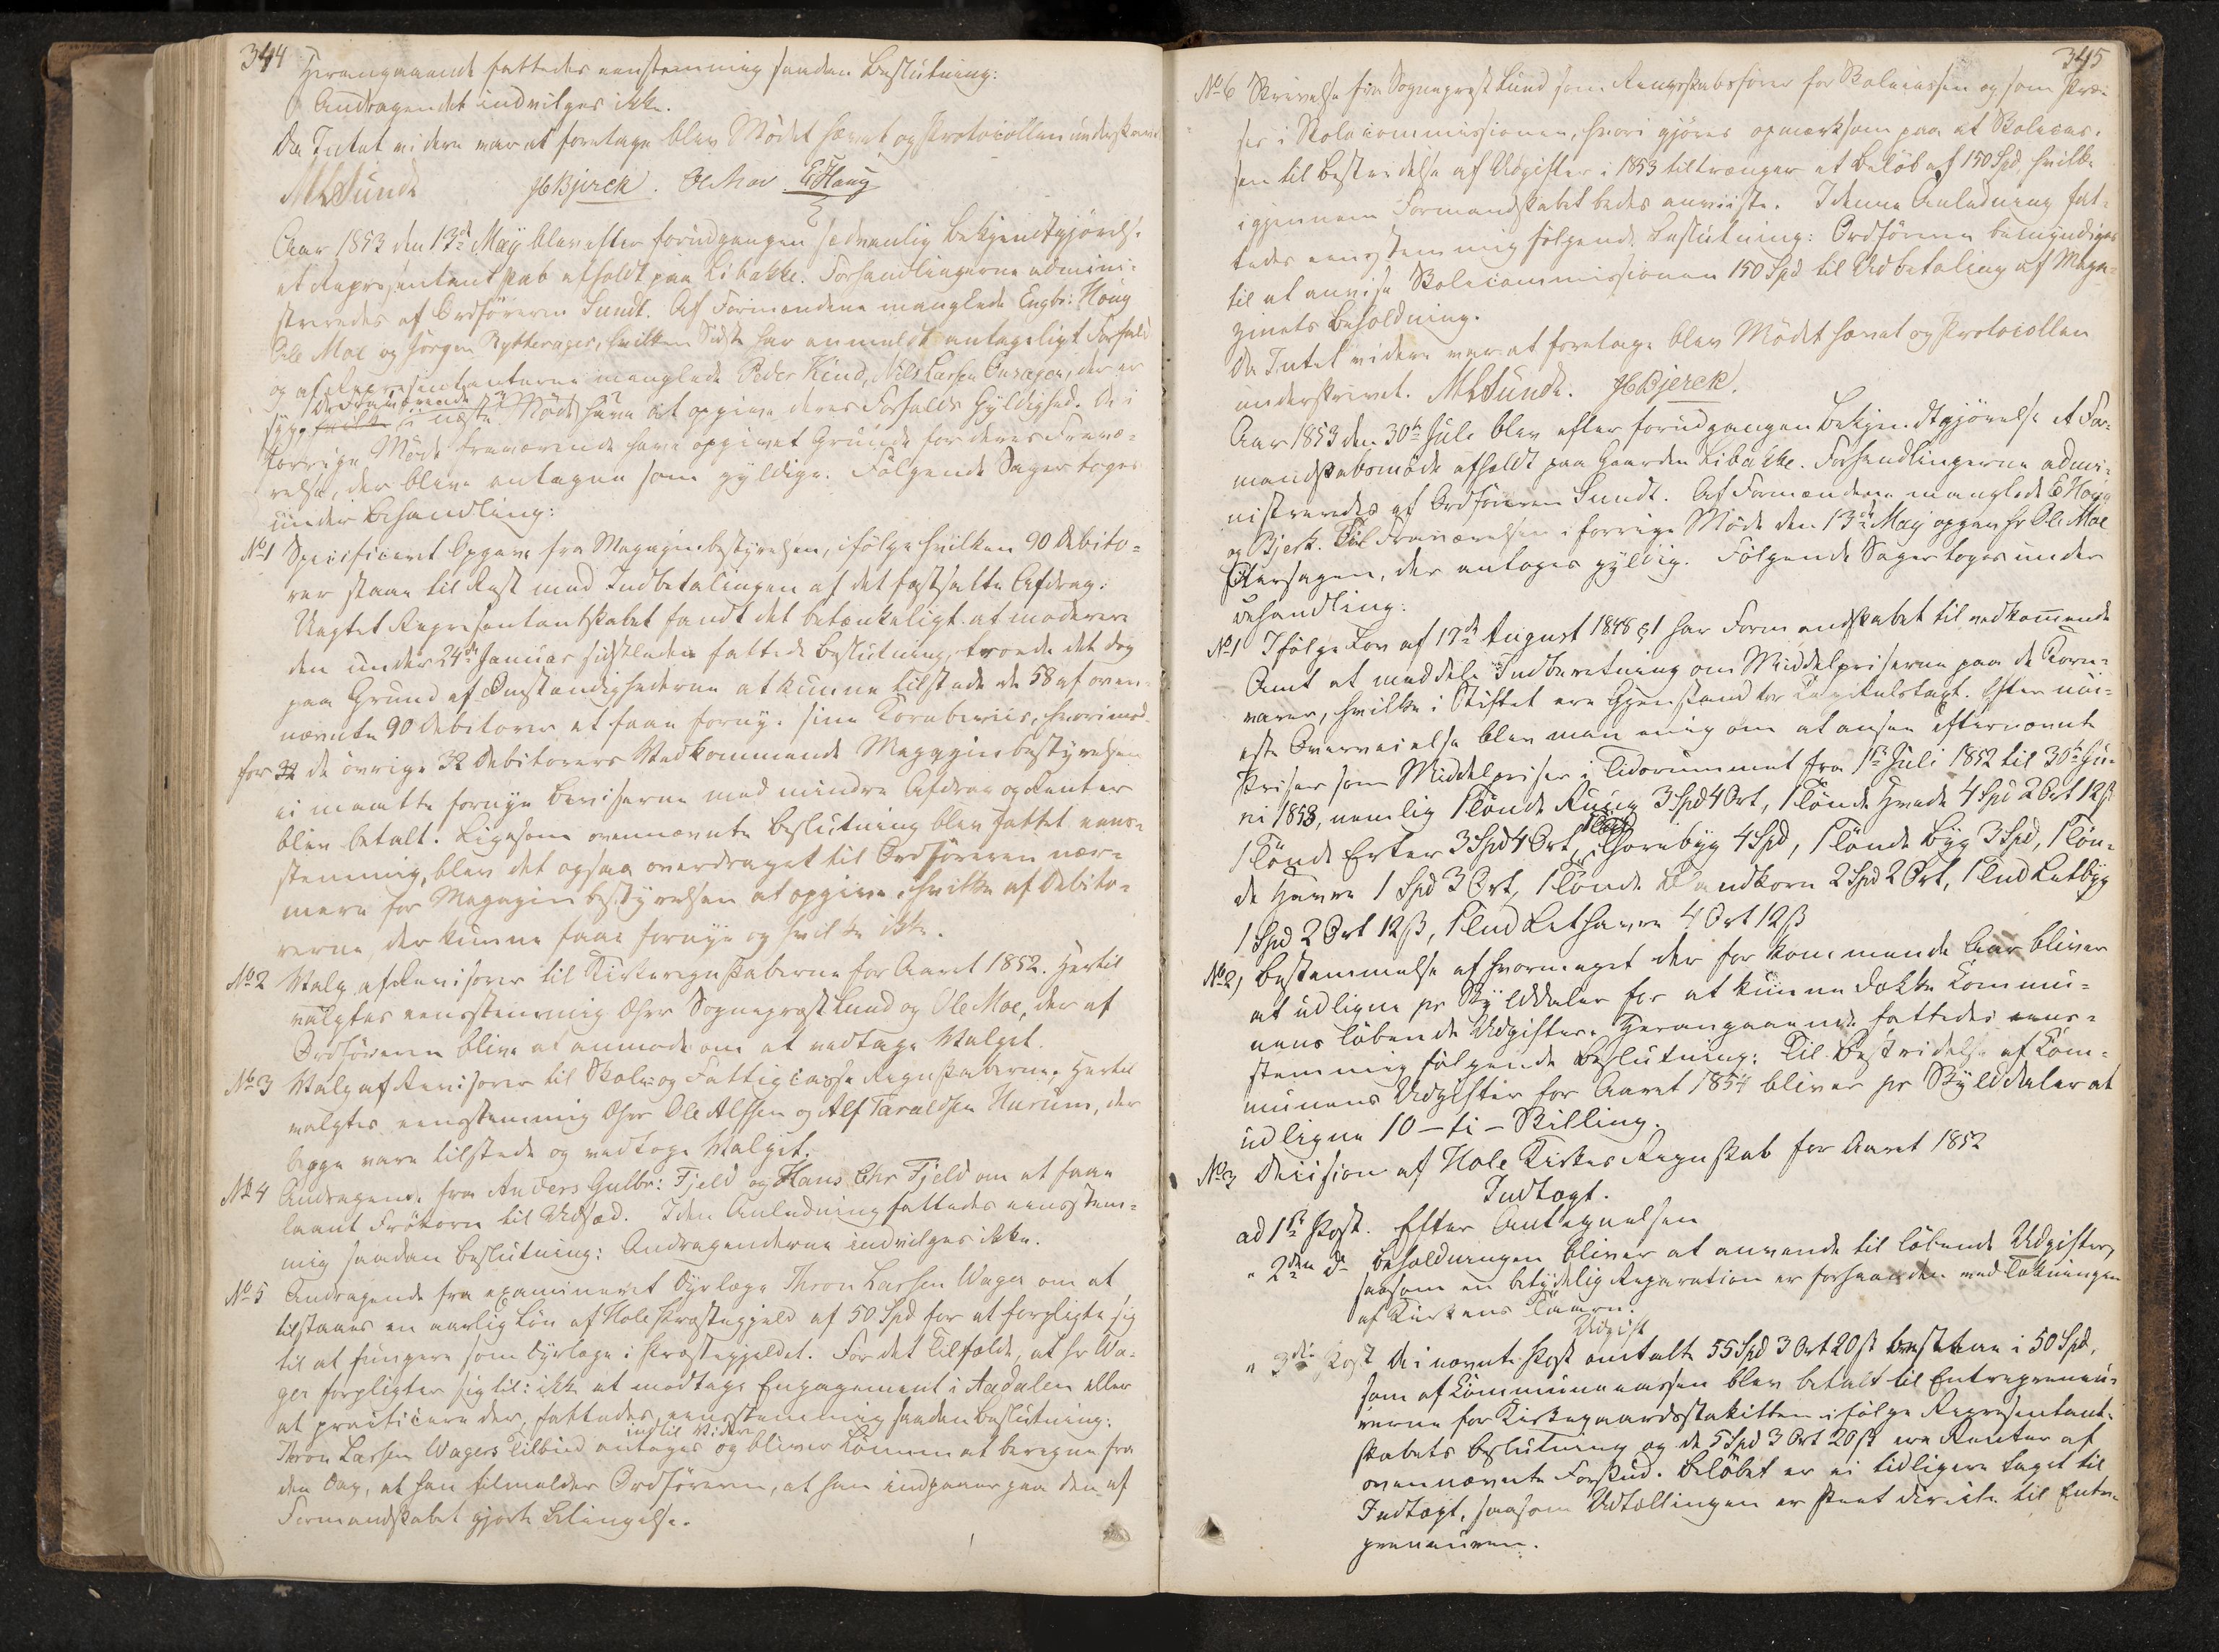 344
Herangaaende fattedes eenstemmig saaden Beslutning:
Andragendet indvilges ikke.
Da Intet videre var at foretage blev Mødet hævet og Protocollen underskreven
MLSundt HBjerck. OleMoe EHaug
Aar 1853 den 13de May blev efter forudgangen sedvanlig Bekjendtgjørelse
et Representantskab afholdt paa Libakke. Forhandlingerne admini-
streredes af Ordføreren Sundt. Af Formændene manglede Engbr: Houg
Ole Moe og Jørgen Rytterager, hvilken Sidste har anmeldt antageligt Forfald
og af Representanterne manglede Peder Kind, Nils Larsen Onsager, der er
syg. De Fraværende i næste Møde have at opgive deres Forfalds Gyldighed. De i
forrige Møde fraværende have opgivet Grunde for deres Fravæ-
relse, der bleve antagne som gyldige. Følgende Sager toges
under Behandling:
No 1 Specificeret Opgave fra Magazinbestyrelsen, ifølge hvilken 90 Debito-
rer staae til Rest med Indbetalingen af det fastsatte Afdrag.
Uagtet Representantskabet fandt det betænkeligt at moderere
den under 24de Januar sidstleden fattede Beslutning, troede det dog
paa Grund af Omstændighederne at kunne tilstede de 58 af oven-
nævnte 90 Debitorer at faae fornye sine Kornbeviis, hvorimod
for de øvrige 32 Debitorers Vedkommende Magazinbestyrelsen
ei maatte fornye Beviserne med mindre Afdrag og Renter
blev betalt. Ligesom ovennævnte Beslutning blev fattet eens-
stemmig, blev det ogsaa overdraget til Ordføreren nær-
mere for Magazinbestyrelsen at opgive hvilke af Debito-
rerne, der kunne faae fornye og hvilke ikke.
No 2 Valg af Revisorer til Kirkeregnskaberne for Aaret 1852. Hertil
valgtes eensstemmig Dhrr Sognepræst Lund og Ole Moe, der af
Ordføreren blive at anmode om at vedtage Valget.
No 3 Valg af Revisorer til Skole- og Fattigcasse Regnskaberne. Hertil
valgtes eensstemmig Dhrr Ole Alfsen og Alf Taraldsen Hurum, der
begge vare tilstede og vedtoge Valget.
No 4 Andragende fra Anders Gulbr: Fjeld og Hans Chr Fjeld om at faae
laant Frøkorn til Udsæd. I den Anledning fattedes eensstem-
mig saadan Beslutning: Andragenderne indvilges ikke.
No 5 Andragende fra examineret Dyrlæge Thron Larsen Wager om at
tilstaaes en aarlig Løn af Hole Præstegjeld af 50 Spd for at forpligte sig
til at fungere som Dyrlæge i Præstegjeldet. For det Tilfælde, at Hr Wa-
ger forpligter sig til: ikke at modtage Engagement i Aadalen eller
at practicere der, fattedes eensstemmig saadan Beslutning:
Thron Larsen Wagers Tilbud antages indtil Videre og bliver Lønnen at beregne fra
den Dag, at han tilmelder Ordføreren, at han indgaaer paa den af
Formandskabet gjorte Betingelse.
345
No 6 Skrivelse fra Sogneprest Lund som Regnskabsfører for Skolecassen og som Præ-
ses i Skolecommissionen, hvori gjøres opmærksom paa at Skolecas-
sen til Bestridelse af Udgifter i 1853 tiltrænger et Beløb af 150 Spd, hvilke
igjennem Formandskabet bedes anviiste. I denne Anledning fat-
tedes eenstemmig følgende Beslutning: Ordføreren bemyndiges
til at anvise Skolecommissionen 150 Spd til Udbetaling af Maga-
zinets Beholdning.
Da Intet videre var at foretage blev Mødet hævet og Protocollen
underskrevet. MLSundt. HBjerck.
Aar 1853 den 30te Juli blev efter forudgangen Bekjendtgjørelse et For-
mandskabsmøde afholdt paa Gaarden Libakke. Forhandlingerne admi-
nistreredes af Ordføreren Sundt. Af Formændene manglede E Houg
og Bjerk. Til Fraværelsen i forrige Møde den 13de May opgav Hr Ole Moe
Aarsagen, der antoges gyldig. Følgende Sager toges under
Behandling:
No 1 Ifølge Lov af 17de August 1848 § 1 har Formandskabet til vedkommende
Amt at meddele Indberetning om Middelpriserne paa de Korn-
varer, hvilke i Stiftet ere Gjenstand for Capitulstaxt. Efter nøi-
este Overveielse blev man enig om at ansee efternævnte
Priser som Middelpriser i Tidsrummet fra 1ste Juli 1852 til 30te Ju-
ni 1853, nemlig 1 Tønde Rug 3 Spd 4 Ort, 1 Tønde Hvede 4 Spd 2 Ort 12 ß
1 Tønde Erter 3 Spd 4 Ort, 1 Tønde Thorebyg 4 Spd, 1 Tønde Byg 3 Spd, 1 Tøn-
de Havre 1 Spd 3 Ort, 1 Tønde Blandkorn 2 Spd 2 Ort, 1 Tnd Letbyg
1 Spd 2 Ort 12 ß, 1 Tnd Lethavre 4 Ort 12 ß
No 2, Bestemmelse af hvormeget der for kommende Aar bliver
at udligne pr Skylddaler for at kunne dække Commu-
nens løbende Udgifter. Herangaaende fattedes eens-
stemmig følgende Beslutning: Til Bestridelse af Com-
munens Udgifter for Aaret 1854 bliver pr Skylddaler at
udligne 10 – ti – Skilling.
No 3 Decision af Hole Kirkes Regnskab for Aaret 1852
Indtægt.
ad 1ste Post. Efter Antegnelsen
" 2den D: Beholdningen bliver at anvende til løbende Udgifter,
saasom en betydelig Reparation er forhaanden ved Tækningen
af Kirkens Taarn.
Udgift
" 3die Post De i nævnte Post omtalte 55 Spd 3 Ort 20 ß bestaae i 50 Spd,
som af Communecassen blev betalt til Entrepreneu-
rerne for Kirkegaardsstakittet ifølge Representant-
skabets Beslutning og de 5 Spd 3 Ort 20 ß ere Renter af
ovennævnte Forskud. Beløbet er ei tidligere taget til
Indtægt, saasom Udtællingen er skeet directe til Entre-
preneuren.